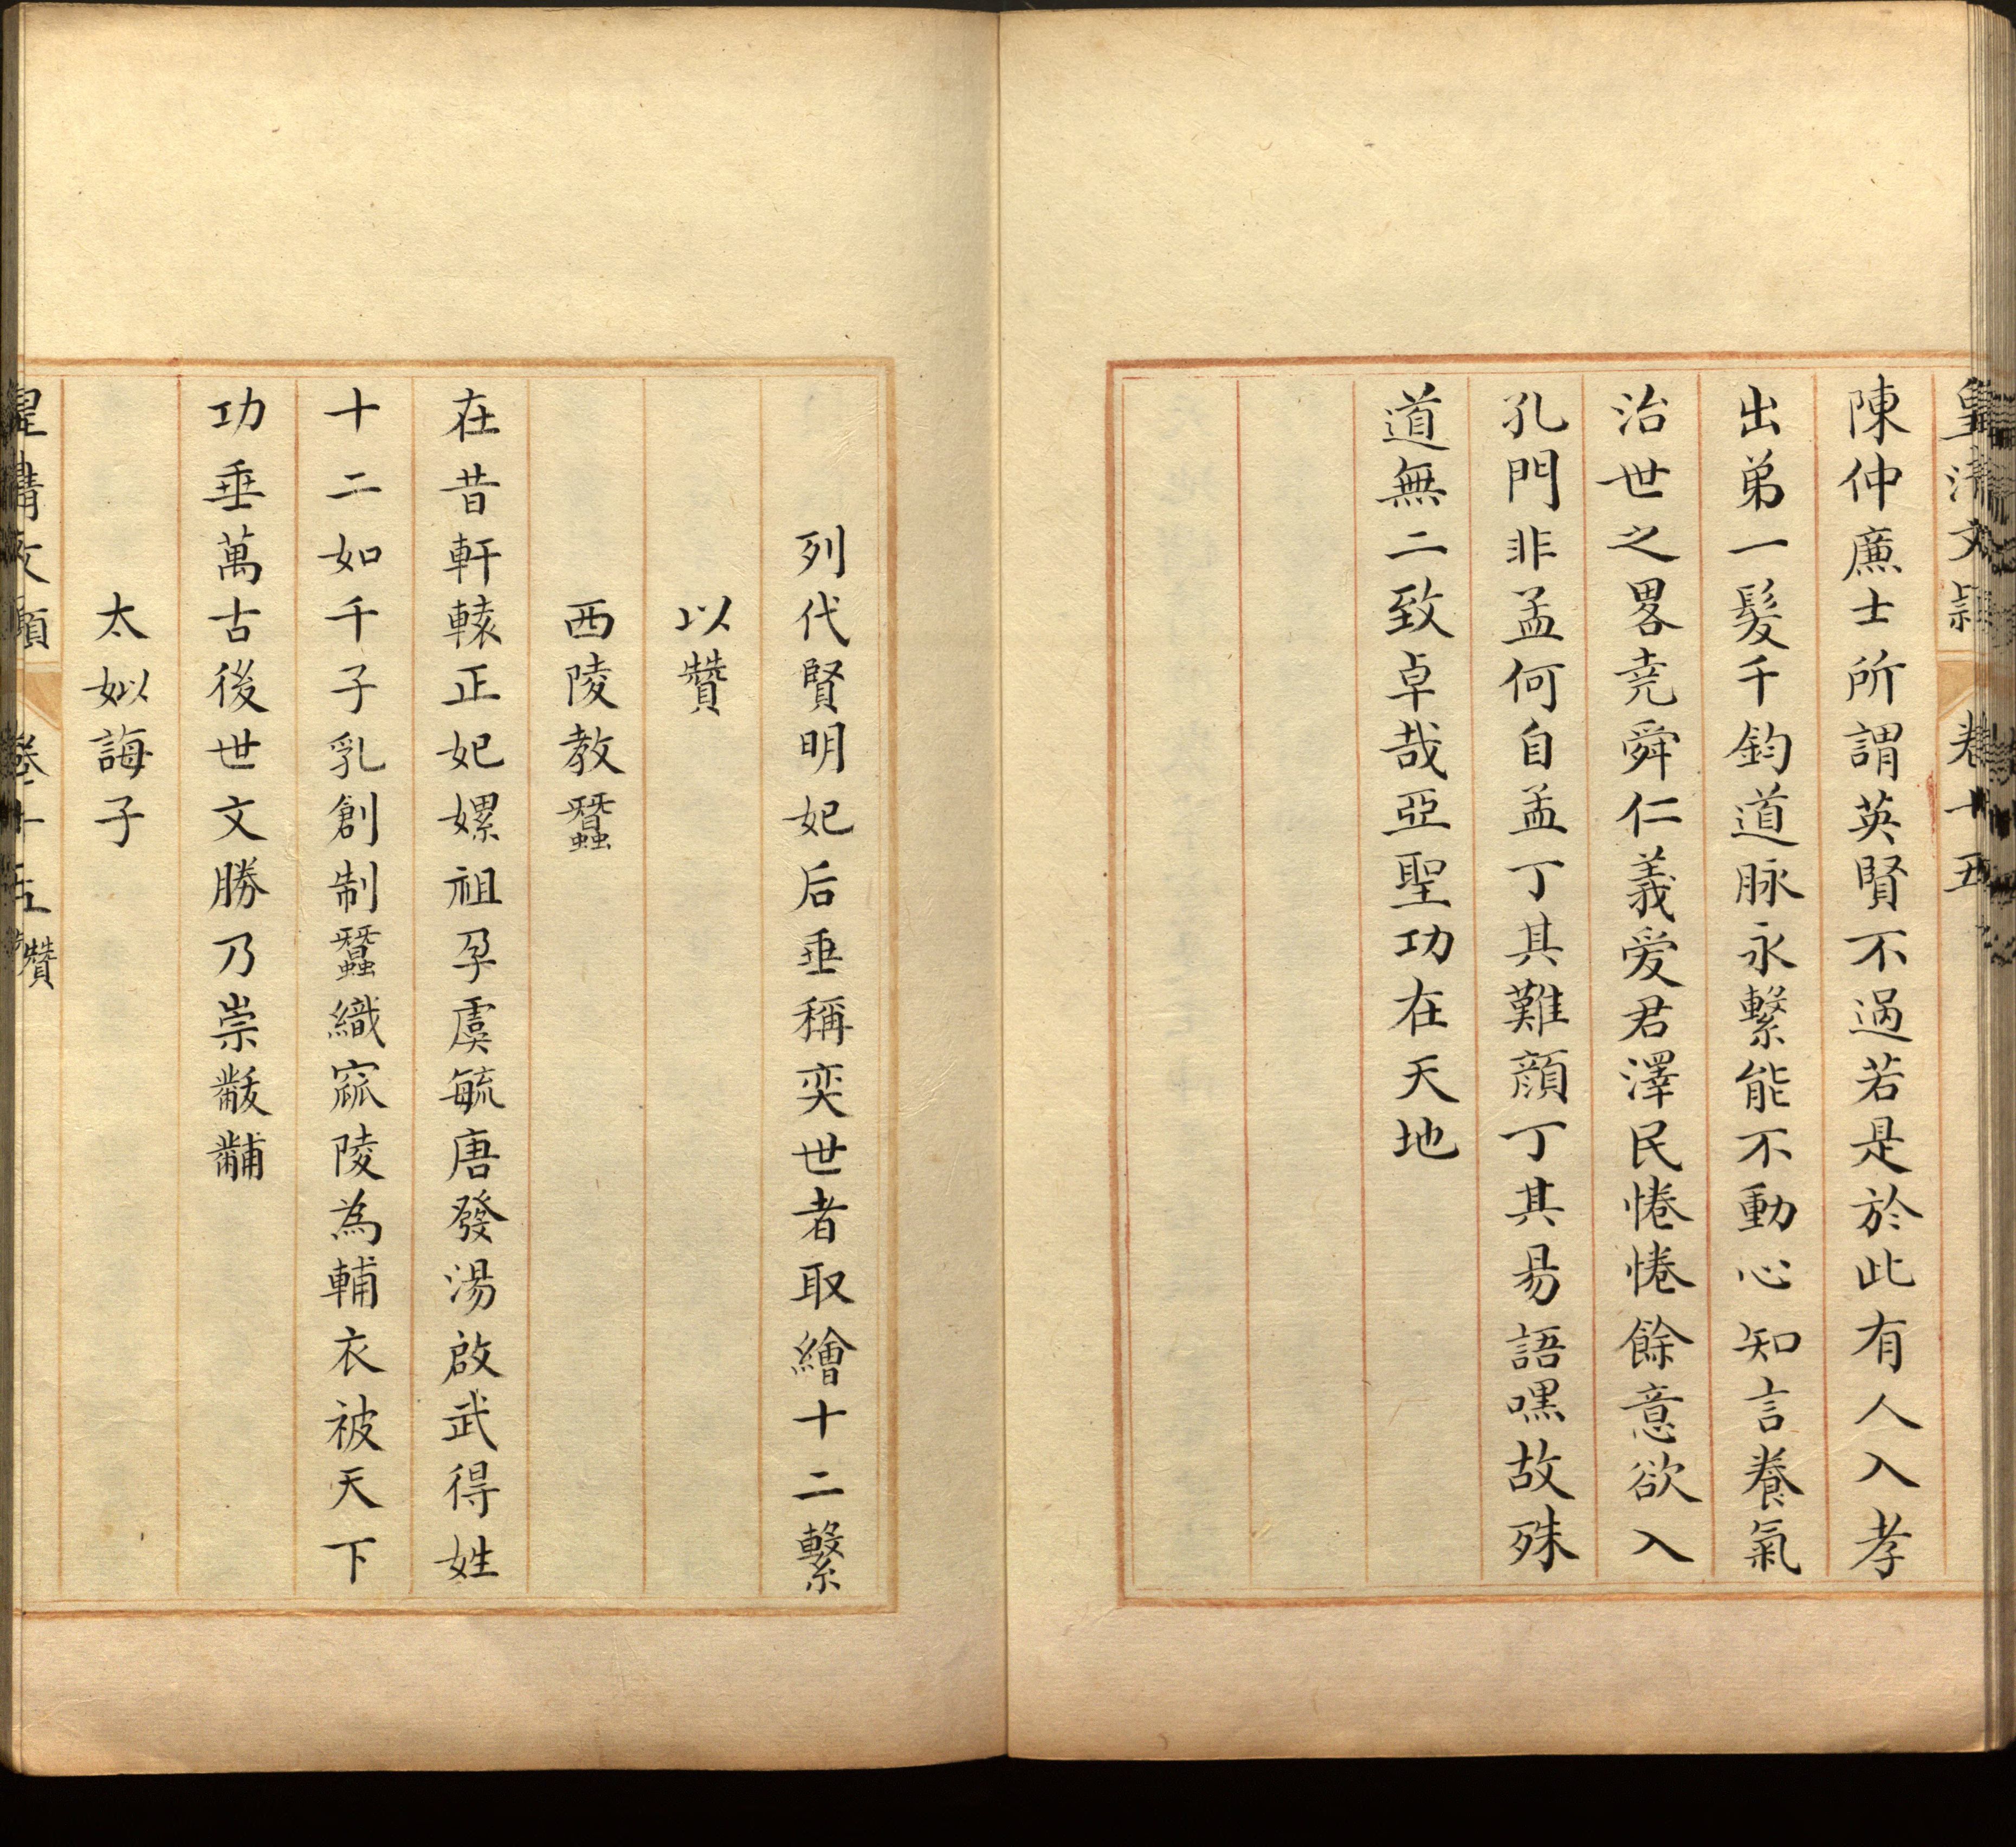 皇清文穎 卷十五
陳仲廉士所謂英賢不過若是於此有人入孝
出弟一髮千鈞道脉永繫能不動心知言養氣
治世之畧堯舜仁義愛君澤民惓惓餘意欲入
孔門非孟何自孟丁其難顔丁其易語嘿故殊
道無二致卓哉亞聖功在天地
列代賢明妃后垂稱奕世者取繪十二繫
以贊
西陵教蠶
在昔軒轅正妃嫘祖孕虞毓唐發湯啟武得姓
十二如千子乳創制蠶織窳陵為輔衣被天下
功垂萬古後世文勝乃崇黻黼
太姒誨子
皇清文穎 卷十五 贊